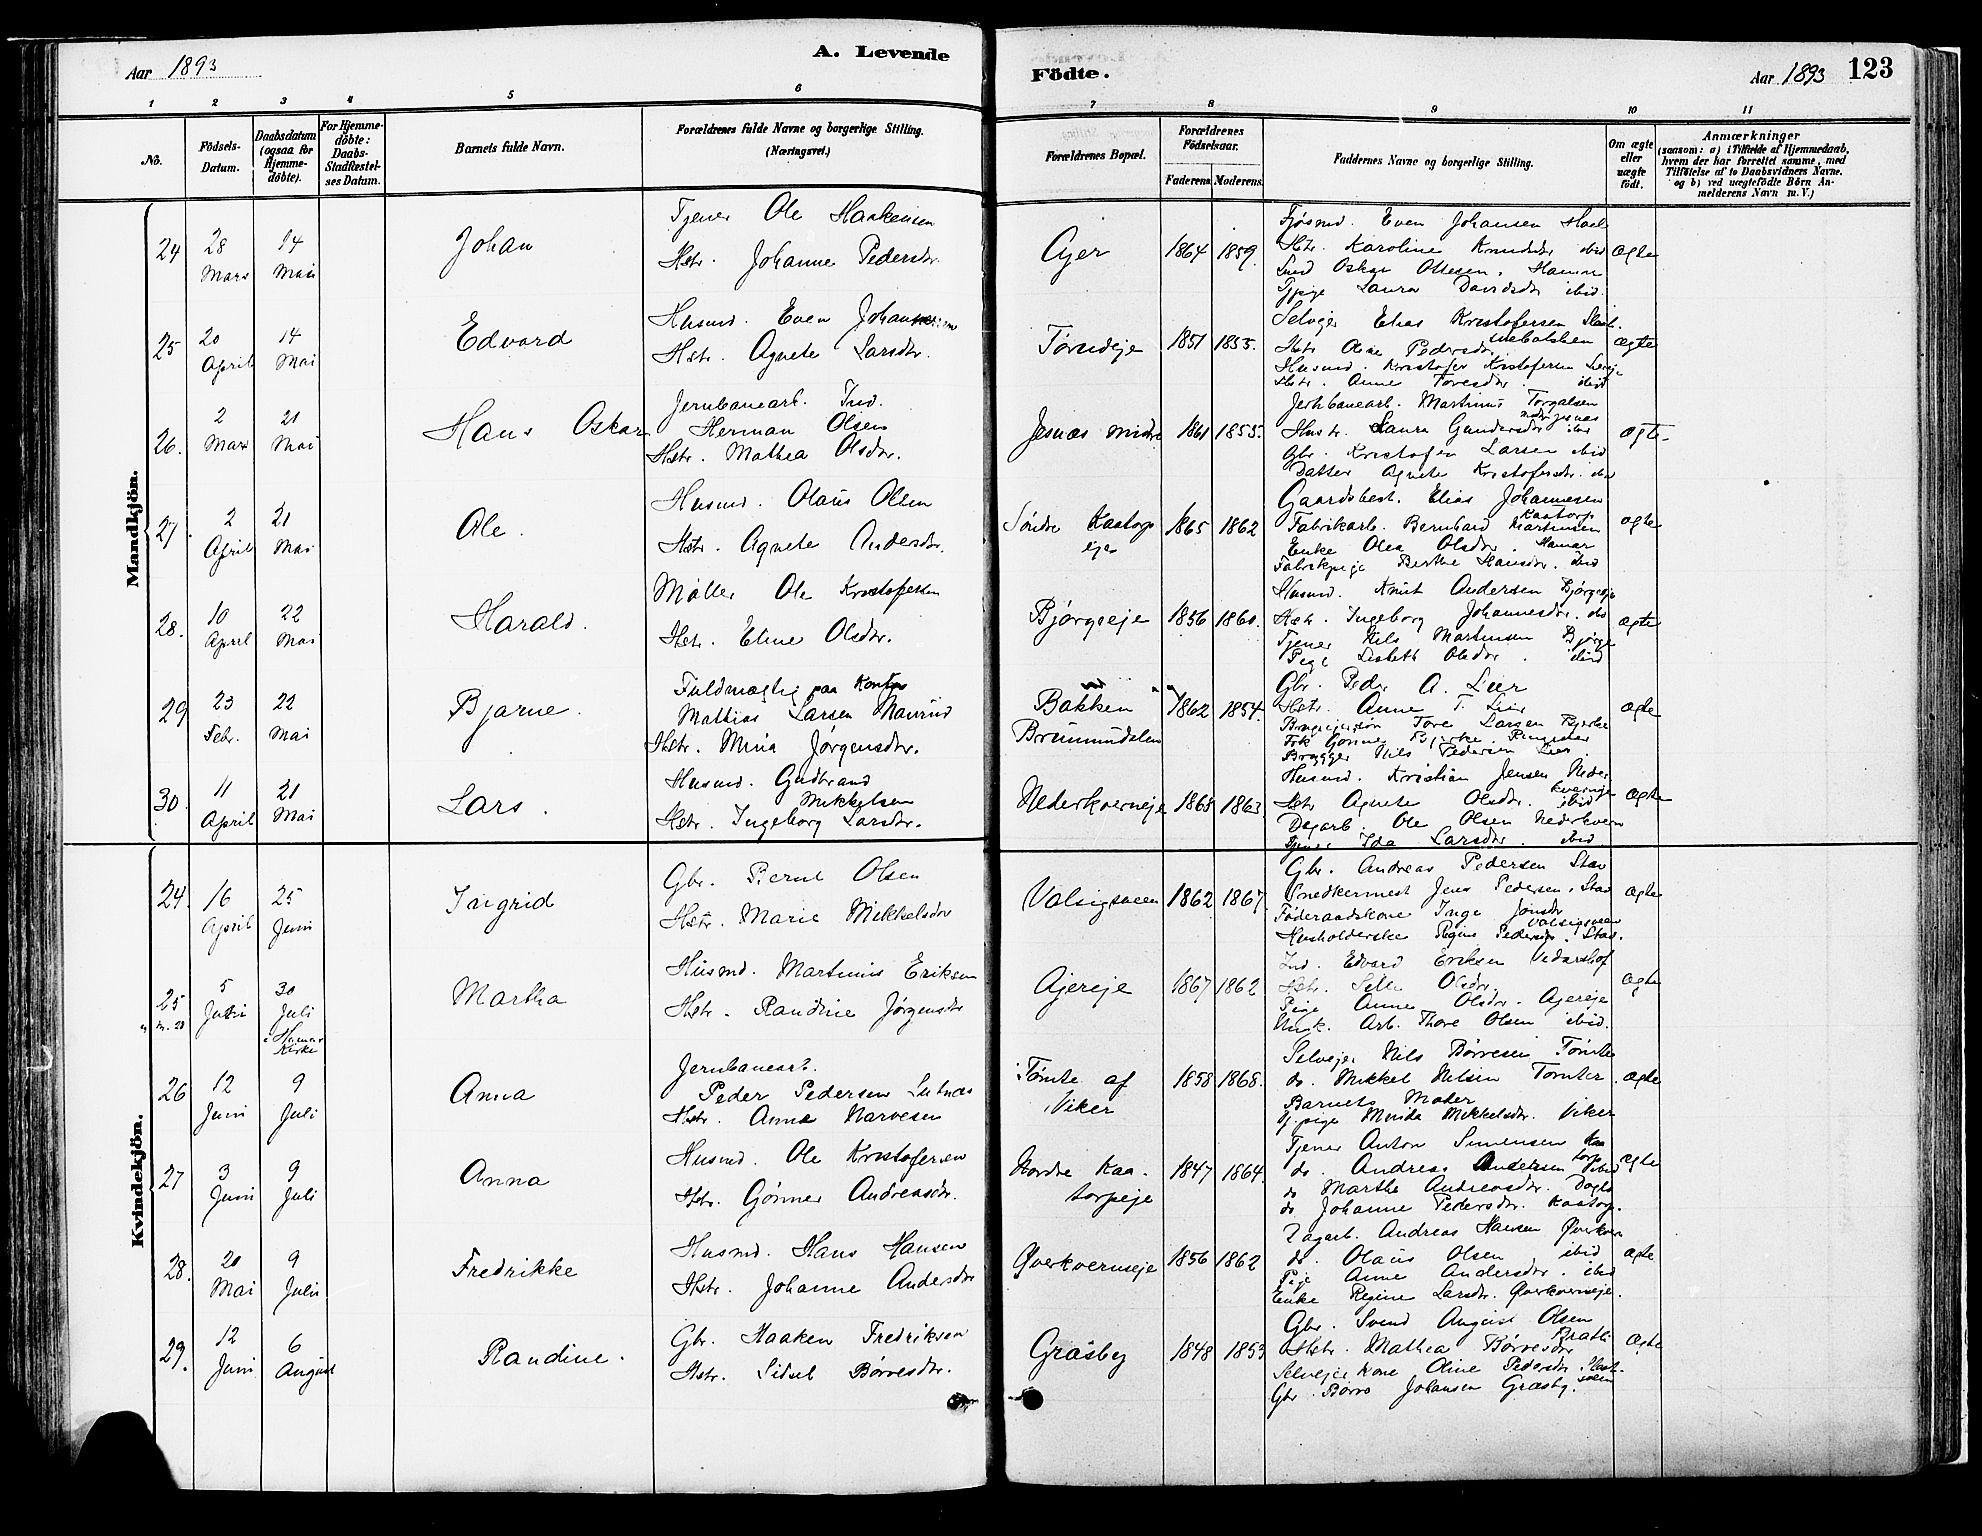 Aar 1893
A. Levende
Födte.
Aar 1893 123
1 2 3 4 5 6 7 8 9 10 11
No.
Födsels-
Datum.
Daabsdatum
(ogsaa for
Hjemme-
döbte).
For Hjemme-
döbte:
Daabs-
Stadfæstel-
ses Datum.
Barnets fulde Navn.
Forældrenes fulde Navne og borgerlige Stilling.
(Næringsvei.)
Forældrenes Bopæl.
Forældrenes
Födselsaar.
Faderens. Moderens.
Faddernes Navne og borgerlige Stilling.
Om ægte
eller
uægte
födt.
Anmærkninger
(saasom: a) i Tilfælde af Hjemmedaab,
hvem der har forrettet samme, med
Tilföielse af to Daabsvidners Navne.
og b) ved uægtefödte Börn An-
melderens Navn m. V.)
Mandkjön.
24
28
Mars
14
Mai
Johan
Tjener Ole Haakensen
Hstr. Johanne Pedersdr.
Ajer
1864 1859.
Even Johansen
Hstr. Karoline Knudsdr ibid
Oskar Ottesen. Hamar
Laura Davidsdr ibid.
ægte
25
20
April
14
Mai
Edvard
Husmd. Even Johannesen
Hstr. Agnete Larsdr.
Tørudeje
1851 1855.
Selvejer Elias Kristofersen
Hstr Oline Pedersdr
Husmd. Kristofer Kristofersen
Hstr. Anne Toresdr. ibid
ægte
26.
2
Mars
21
Mai
Hans Oskar
Jernbanearb. Ind.
Herman Olsen
Hstr. Mathea Olsdr.
Jesnæs nedre
1861 1855.
Jernbanearb. Martinus Torgalsen
Hustr. Laura Gundersdr ibid
Gbr. Kristofer Larsen ibid
Datter Agnete Kristofersdr. ibd
ægte.
27.
2
April
21
Mai
Ole.
Husmd. Olaus Olsen
Hstr. Agnete Andersdr.
Søndre Kaatorp
eje
1865 1862
Gaardsbest. Elias Johannesen
Kaatorp
Fabrikarb. Bernhard Martinsen
Enke Olea Olsdr. Hamar
Fabrikpige Berthe Hansdr. ibid
ægte
28.
10
April
22
Mai
Harald.
Møller Ole Kristofersen
Hstr. Eline Olsdr.
Bjørgeeje
1856 1860.
Husmd. Knut Andersen Bjørgeeje
Hstr. Ingeborg Johannesdr. ibd
Tjener Nils Martinsen Bjørge
Pige Lisbeth Olsdr. ibid
ægte
29
23
Febr.
22
Mai
Bjarne.
Fuldmægtig paa Kontor
Mathias Larsen Maurud
Hstr. Mina Jørgensdr.
Bakken
Brumunddalen
1862 1854.
Gbr. Peder A. Lier
Hstr. Anne T. Lier
Tore Larsen Bjerke
Frk Gønne Bjerke Ringsaker
Brygger Nils Pedersen Lier
ægte
30.
11
April
21
Mai
Lars.
Husmd. Gudbrand
Mikkelsen
Hstr. Ingeborg Larsdr.
Nederkverneje
1865 1863.
Husmd. Kristian Jensen Neder
kverneje
Hstr Agnete Olsdr. ibid
Dagarb. Ole Olsen Nederkvern
Tjener Ida Larsdr. ibid
ægte
Kvindekjön.
24.
16
April
25
Juni
Ingrid
Gbr. Bernt Olsen
Hstr. Marie Mikkelsdr
Valsigsveen
1862 1867.
Gbr. Andreas Pedersen Stav
Snedkermest Jens Pedersen. Stav
Føderaadskone Inge Jonsdr
Valsigsveen
Husholderske Regine Pedersdr. Stav.
ægte
25
5
Juni
30
Juli
i Hamar
Kirke
Martha
Husmd. Martinus Eriksen
Hstr. Randine Jørgensdr
Ajereje
1867 1862
Ind. Edvard Eriksen Vidarshof
Hstr. Olsdr.
Pige Anne Olsdr. Ajereje
Ungk. Arb. Thore Olsen ibid.
ægte
26
12
Juni
9
Juli
Anna
Jernbanearb.
Peder Pedersen Lutnæs
Hstr. Anna Narvesen
Tømte af
Viker
1858 1868.
Selvejer Nils Børresen Tømte
do. Mikkel Nilsen Tømter.
Barnets Moder
Tj.pige Minda Mikkelsdr. Viker
ægte
27
3
Juni
9
Juli
Anna
Husmd. Ole Kristofersen
Hstr. Gønner Andreasdr.
Nordre Kaa-
torpeje
1847 1864.
Tjener Anton Simensen Kaa
torp
do. Andreas Andersen ibid
do Marthe Andreasdr. Dogl
do Johanne Pedersdr. Kaatorp.
ægte
28.
20
Mai
9
Juli
Fredrikke
Husmd. Hans Hansen
Hstr. Johanne Andersdr
Øverkverneje
1856 1862
Dagarb. Andreas Hansen Øverkvern
do. Olaus Olsen ibid
Pige Anne Andersdr. ibid
Enke Regine Larsdr. Øverkverneje.
ægte
29.
12
Juni
6
August
Randine.
Gbr. Haaken Fredriksen
Hstr. Sidsel Børresdr.
Gräsby
1848 1853
Gbr. Svend August Olsen
Hstr. Mathea Børresdr
Selvejer kone Oline Pedersdr
Gbr. Børre Johansen Græsby.
ægte